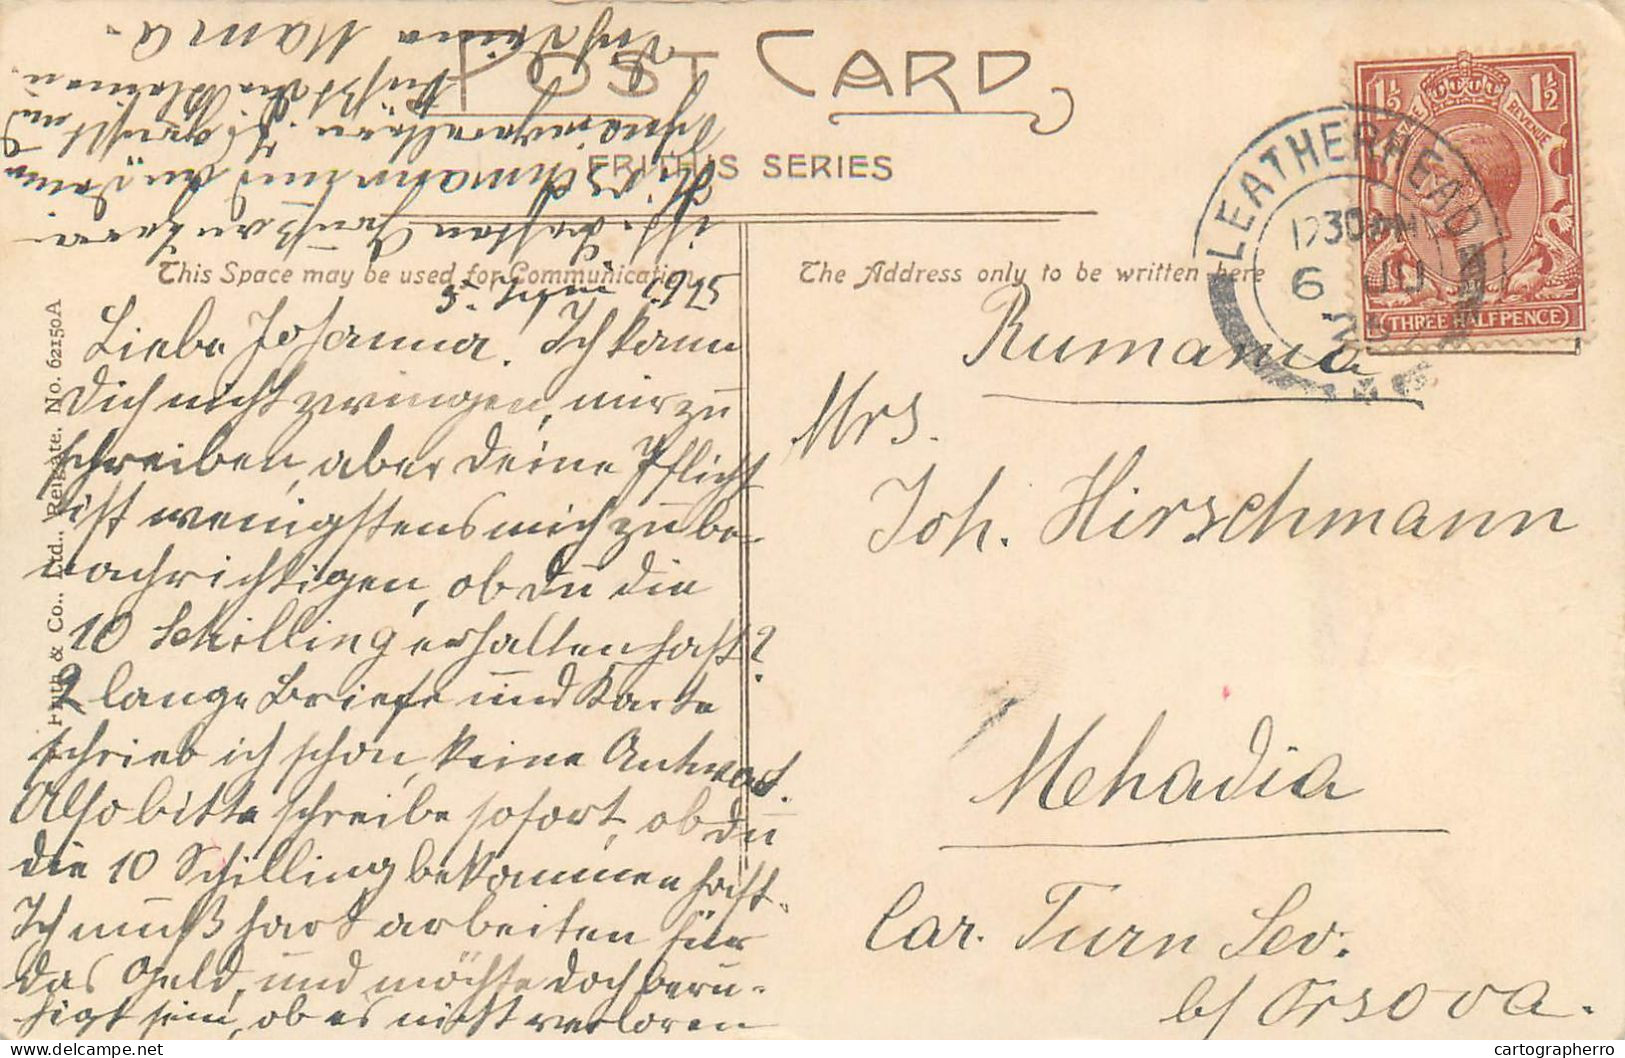 POST CARD
FRITH'S SERIES
This Space may be used for Communication
The Address only to be written here
F. Frith & Co., Ltd., Reigate. No. 62150A
LEATHERHEAD
1230PM
6 JU
1½ 1½
REVENUE
THREE HALFPENCE
5. Juni
Liebe Johanna. Ich kann
Dich nicht zwingen, mir zu
schreiben, aber deine Pflicht
ist wenigstens mich zu be-
nachrichtigen, ob du die
10 Schilling erhalten hast?
2 lange Briefe und Karte
schrieb ich schon, keine Antwort.
Also bitte schreibe sofort, ob du
die 10 Schilling bekommen hast.
Ich muß hart arbeiten für
das Geld, und möchte doch beru-
higt sein, ob es nicht verloren
ist. Besten Gruß an
Hirschmann und
Schwiegereltern. Es grüßt und
küßt die Kleinen
Deine Mama.
Rumania
Mrs.
Joh. Hirschmann
Mehadia
Car. Turn Sev.
b/ Orsova.
delcampe.net
cartographerro